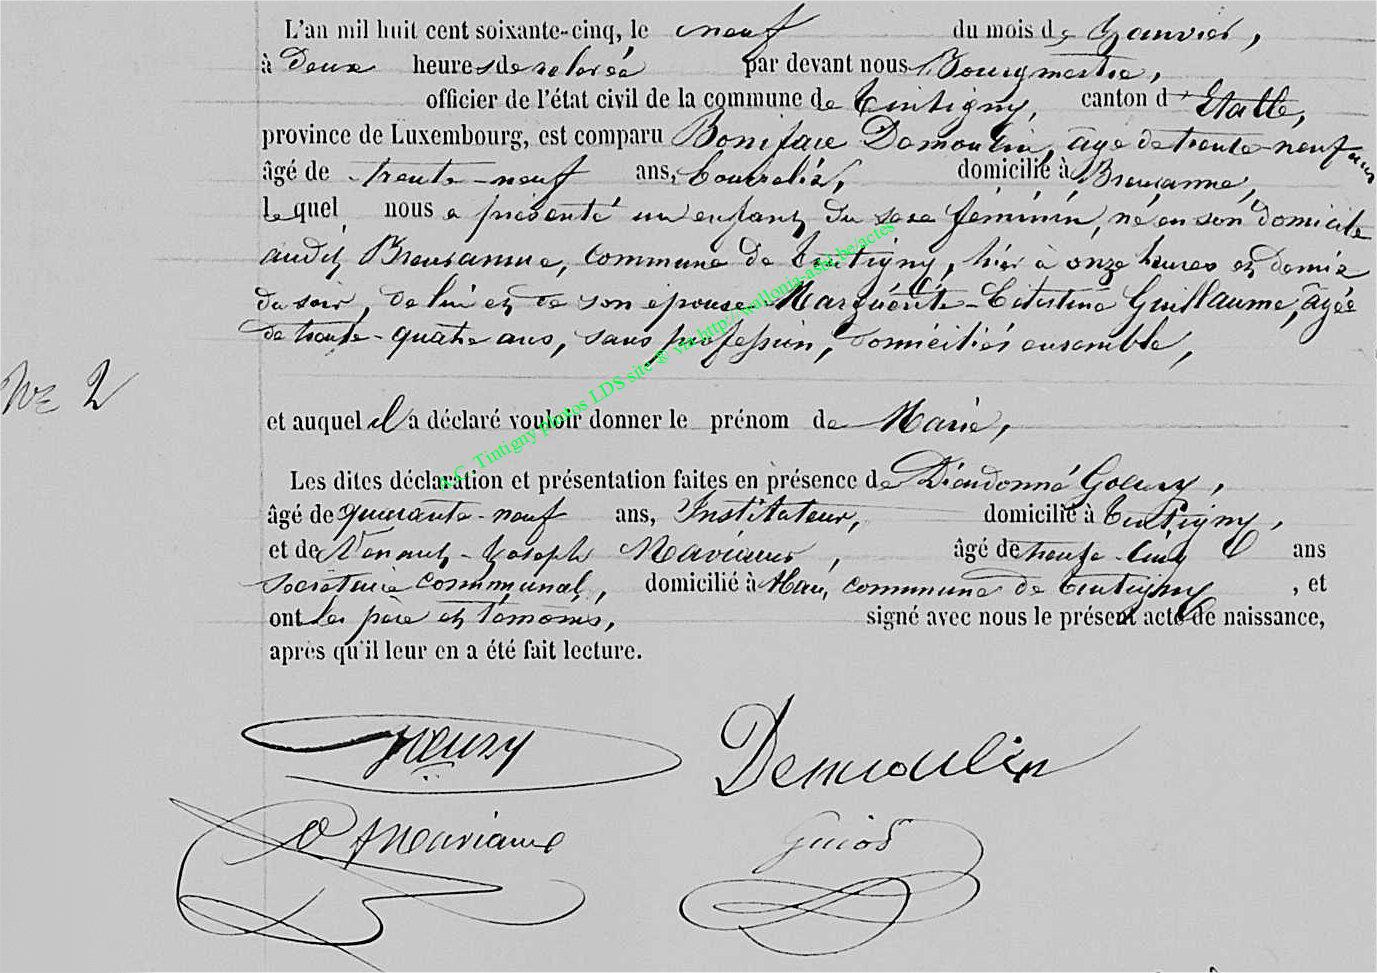 L'an mil huit cent soixante-cinq, le neuf du mois de Janvier,
à Deux heures de relevée par devant nous Bourgmestre,
officier de l'état civil de la commune de Tintigny, canton d'Etalle,
province de Luxembourg, est comparu Boniface Demoulin, âgé de trente-neuf ans
âgé de trente-neuf ans, Bourrelier, domicilié à Breuvanne,
lequel nous a présenté un enfant du sexe féminin, né en son domicile
audit Breuvanne, commune de Tintigny, hier à onze heures et demie
du soir, de lui et de son épouse Marguerite-Célestine Guillaume, âgée
de trente-quatre ans, sans profession, domiciliés ensemble,
No 2
et auquel il a déclaré vouloir donner le prénom de Marie,
Les dites déclaration et présentation faites en présence de Dieudonné Goury,
âgé de quarante-neuf ans, Instituteur, domicilié à Tintigny,
et de Joseph âgé de trente-cinq ans
secrétaire communal, domicilié à Han, commune de Tintigny, et
ont les père et témoins, signé avec nous le présent acte de naissance,
après qu'il leur en a été fait lecture.
Demoulin
A.C. Tintigny photos LDS site @ via http://wallonia-asbl.be/actes